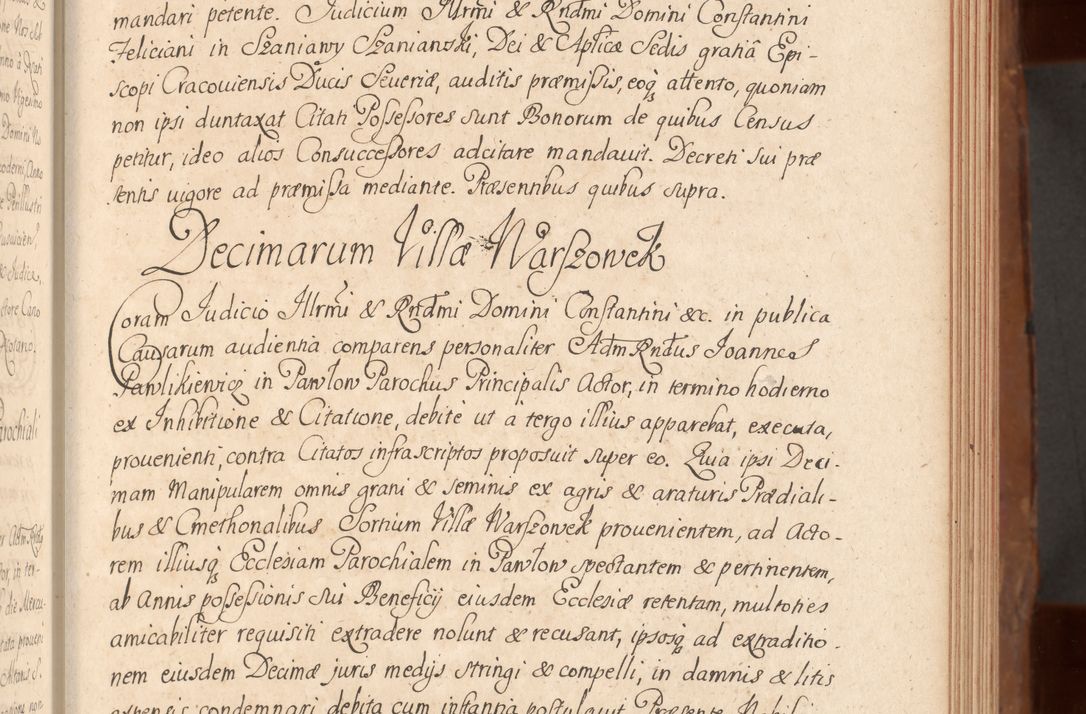 mandari petente. Judicium Illrmi & Rndmi Domini Constantini
Feliciani in Szaniawy Szaniawski, Dei & Aplicæ Sedis gratiâ Epi-
scopi Cracoviensis Ducis Severiæ, auditis præmissis, eoq attento, quoniam
non ipsi duntaxat Citati Possessores sunt Bonorum de quibus Census
petitur, ideo alios Consuccessores adcitare mandavit. Decreti sui præ
sentis vigore ad præmissa mediante. Præsentibus quibus supra.
Decimarum Villæ Warszowek
Coram Judicio Illrmi & Rndmi Domini Constantini &c. in publica
Causarum audientia comparens personaliter Adm Rndus Joannes
Pawlikiewicz in Pawlow Parochus Principalis Actor, in termino hodierno
ex Inhibitione & Citatione, debite ut à tergo illius apparebat, executa,
provenienti, contra Citatos infrascriptos proposuit super eo. Quia ipsi Deci-
mam Manipularem omnis grani & seminis ex agris & araturis Prædiali-
bus & Cmethonalibus Sortium Villæ Warszowek provenientem, ad Acto-
rem illiusq Ecclesiam Parochialem in Pawlow spectantem & pertinentem,
ab Annis possessionis sui Beneficij eiusdem Ecclesiæ retentam, multoties
amicabiliter requisiti extradere nolunt & recusant, ipsosq ad extraditio-
nem eiusdem Decimæ juris medijs stringi & compelli, in damnis & litis
expensis condemnari debita cum instantia postulavit. Præsente Nobili